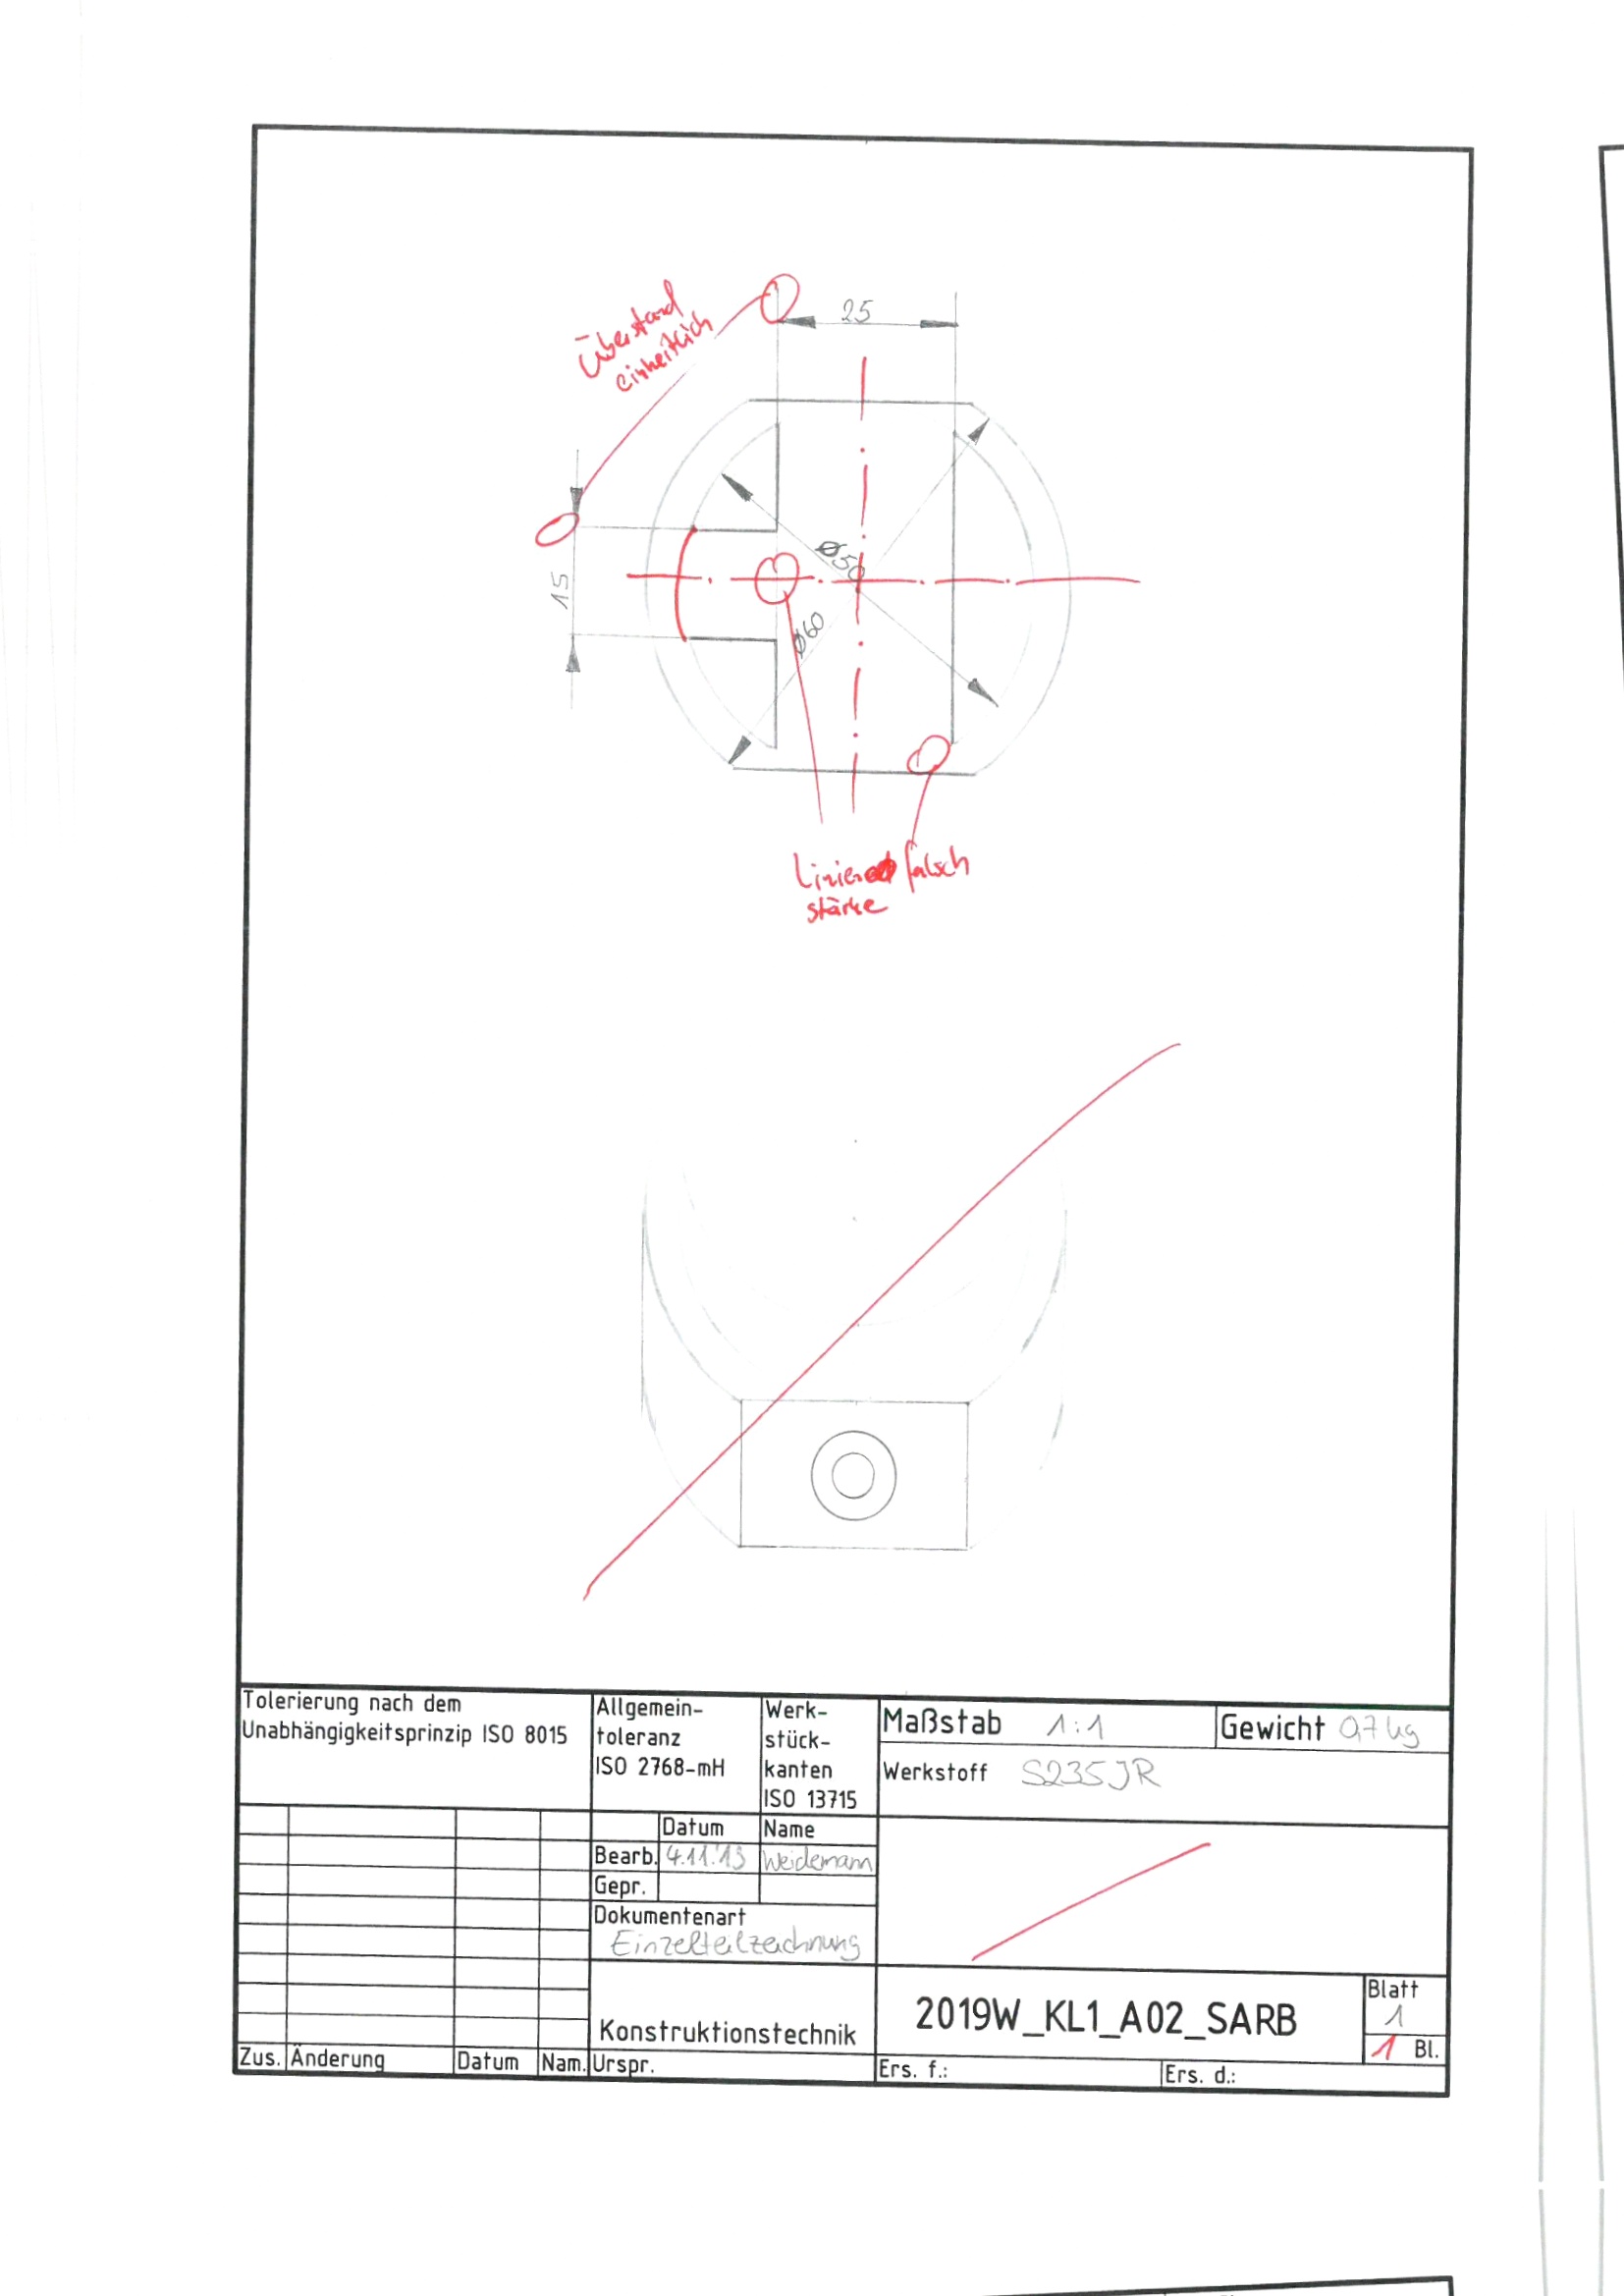 Überstand
einheitlich
25
15
Ø50
Ø60
Linien falsch
stärke
Tolerierung nach dem
Unabhängigkeitsprinzip ISO 8015
Allgemein-
toleranz
ISO 2768-mH
Werk-
stück-
kanten
ISO 13715
Maßstab 1:1
Gewicht 0,7 kg
Werkstoff S235JR
Datum Name
Bearb. 4.11.19 Weidemann
Gepr.
Dokumentenart
Einzelteilzeichnung
Konstruktionstechnik
2019W_KL1_A02_SARB
Blatt
1
1 Bl.
Zus. Änderung Datum Nam. Urspr. Ers. f.: Ers. d.: